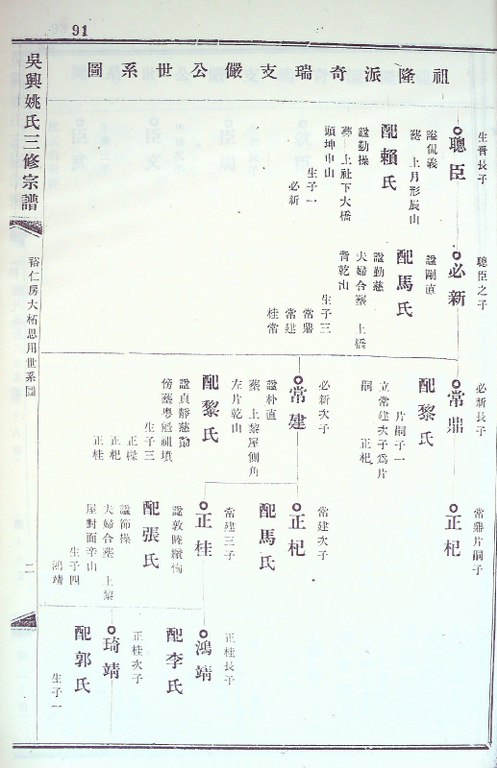 91
祖隆派奇瑞支儼公世系圖
吳興姚氏三修宗譜
裕仁房大柘思用世系圖
二
生晉長子
聰臣
諡侃義
葬上月形辰山
配賴氏
諡勤操
葬上社下大橋
頭坤申山
生子一
必新
聰臣之子
必新
諡剛直
配馬氏
諡勤慈
夫婦合葬上橋
背乾山
生子三
常鼎
常建
桂常
必新長子
常鼎
配黎氏
片嗣子一
立常建次子爲片
嗣 正杞
必新次子
常建
諡朴直
葬上黎屋側角
左片乾山
配黎氏
諡貞靜慈勤
傍葬粵魁祖墳
生子三
正樑
正杞
正桂
常鼎片嗣子
正杞
常建次子
正杞
配馬氏
常建三子
正桂
諡敦睦
配張氏
諡節操
夫婦合葬上黎
屋對面辛山
生子四
鴻靖
正桂長子
鴻靖
配李氏
正桂次子
琦靖
配郭氏
生子一